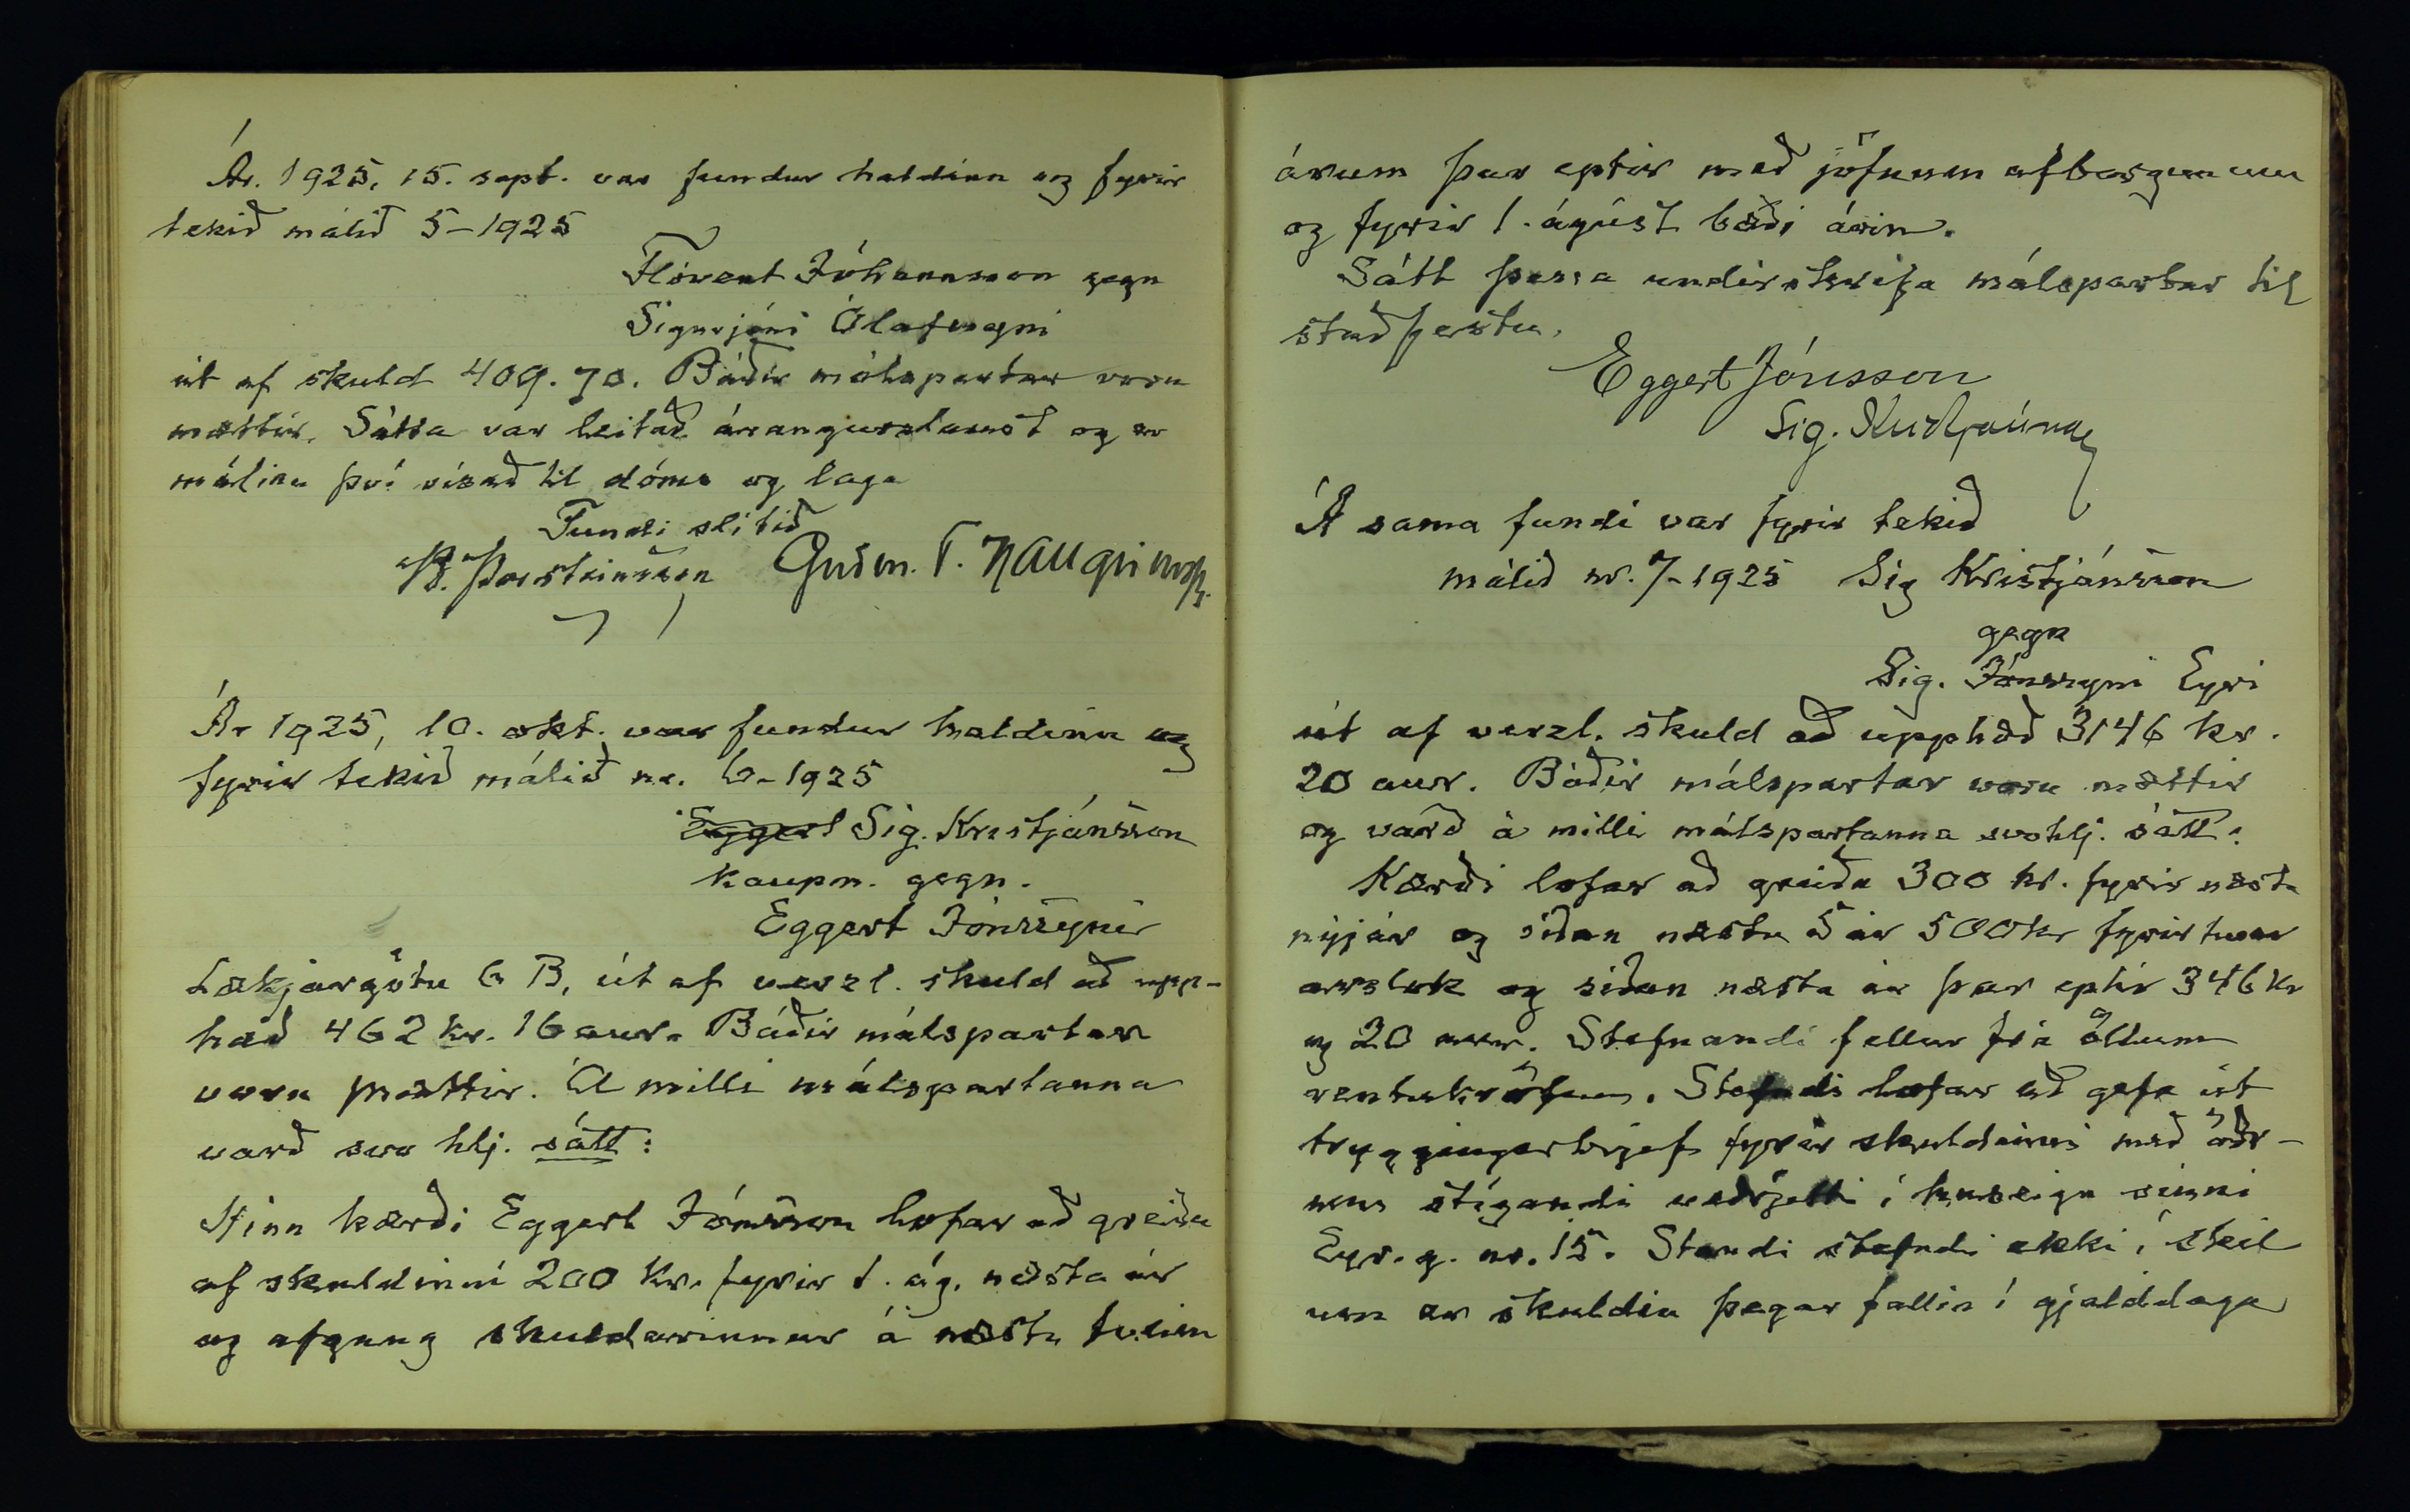 Ár. 1925, 15. sept. var fundur haldinn og fyrir
tekið málið 5-1925
Flóvent Jóhannsson gegn
Sigurjóni Ólafssyni
út af skuld 409.70. Báðir málspartar voru
mættir. Sátta var leitað árangurslaust og er
málinu því vísað til dóms og laga
Fundi slitið
B. Þorsteinsson Guðm. T. Hallgrímss.
Ár 1925, 10. okt. var fundur haldinn og
fyrir tekið málið nr. 6-1925
Eggert Sig. Kristjánsson
kaupm. gegn.
Eggert Jónssyni
Lækjargötu 6 B, út af verzl. skuld að upp-
hæð 462 kr. 16 aur. Báðir málspartar
voru mættir. Á milli málspartanna
varð svo hlj. sátt:
Hinn kærði Eggert Jónsson lofar að greiða
af skuldinni 200 Kr. fyrir 1. ág. næsta ár
og afgang skuldarinnar á næstu tveim
árum þar eptir með jöfnum afborgunum
og fyrir 1. ágúst bæði árin.
Sátt þessa undirskrifa málspartar til
staðfestu.
Eggert Jónsson
Sig. Kristjánss
Á sama fundi var fyrir tekið
málið nr. 7-1925 Sig Kristjánsson
gegn
Sig. Jónssyni Eyri
út af verzl. skuld að upphæð 3146 kr.
20 aur. Báðir málspartar voru mættir
og varð á milli málspartanna svohlj. sátt:
Kærði lofar að greiða 300 kr. fyrir næsta
nýjár og síðan næstu 5 ár 500 kr fyrir hver
árslok og síðan næsta ár þar eptir 346 kr
og 20 aur. Stefnandi fellur frá öllum
rentukröfum. Stefndi lofar að gefa út
tryggingarbrjef fyrir skuldinni með öðr-
um stígandi veðrjetti í húseign sinni
Eyr.g. nr. 15. Standi stefndi ekki í skil
um er skuldin þegar fallin í gjalddaga